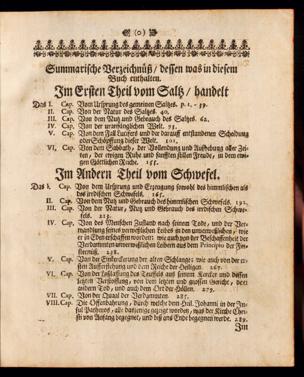 (o)
Summarische Verzeichnüß / dessen was in diesem
Buch enthalten.
Im Ersten Theil vom Saltz / handelt
Das I. Cap. Von Ursprung des gemeinen Saltzes. p. 1. - 39.
II. Cap. Von der Natur des Saltzes 40.
III. Cap. Von dem Nutz und Gebrauch des Saltzes. 62.
IV. Cap. Von der uranfänglichen Welt. 75.
V. Cap. Von dem Fall Lucifers und der darauf entstandenen Schaidung
oder Schöpffung dieser Welt. 101.
VI. Cap. Von dem Sabbath, der Vollendung und Auffhebung aller Zei-
ten, der ewigen Ruhe und sanfften stillen Freude, in dem ewi-
gen Göttlichen Reiche. 155.
Im Andern Theil vom Schwefel.
Das I. Cap. Von dem Ursprung und Erzeugung sowohl des himmlischen als
des irrdischen Schwefels. 165.
II. Cap. Von dem Nutz und Gebrauch des himmlischen Schwefels. 192.
III. Cap. Von der Natur, Nutz und Gebrauch des irrdischen Schwe-
fels. 215.
IV. Cap. Von des Menschen Zustand nach seinem Tode, und der Ver-
wandlung seines verweßlichen Leibes in den unverweßlichen, wie
er in Eden erschaffen worden: wie auch von der Beschaffenheit der
Verdammten unverweßlichen Leibern aus dem Principio der Fin-
sternuß. 238.
V. Cap. Von der Einkerckerung der alten Schlange; wie auch von der er-
sten Aufferstehung und dem Reiche der Heiligen. 267.
VI. Cap. Von der Loßlassung des Teuffels aus seinem Kercker und dessen
letzten Verstossung, von dem letzten und grossen Gericht, dem
andern Tod, und auch dem Ort der Höllen. 279.
VII. Cap. Von der Quaal der Verdammten 285.
VIII. Cap. Die Offenbahrung, durch welche dem Heil. Johanni in der In-
sul Pathmos, alle dasjenige gezeiget worden, was der Kirche Chri-
sti von Anfang begegnet, und biß ans Ende begegnen werde. 289.
Im